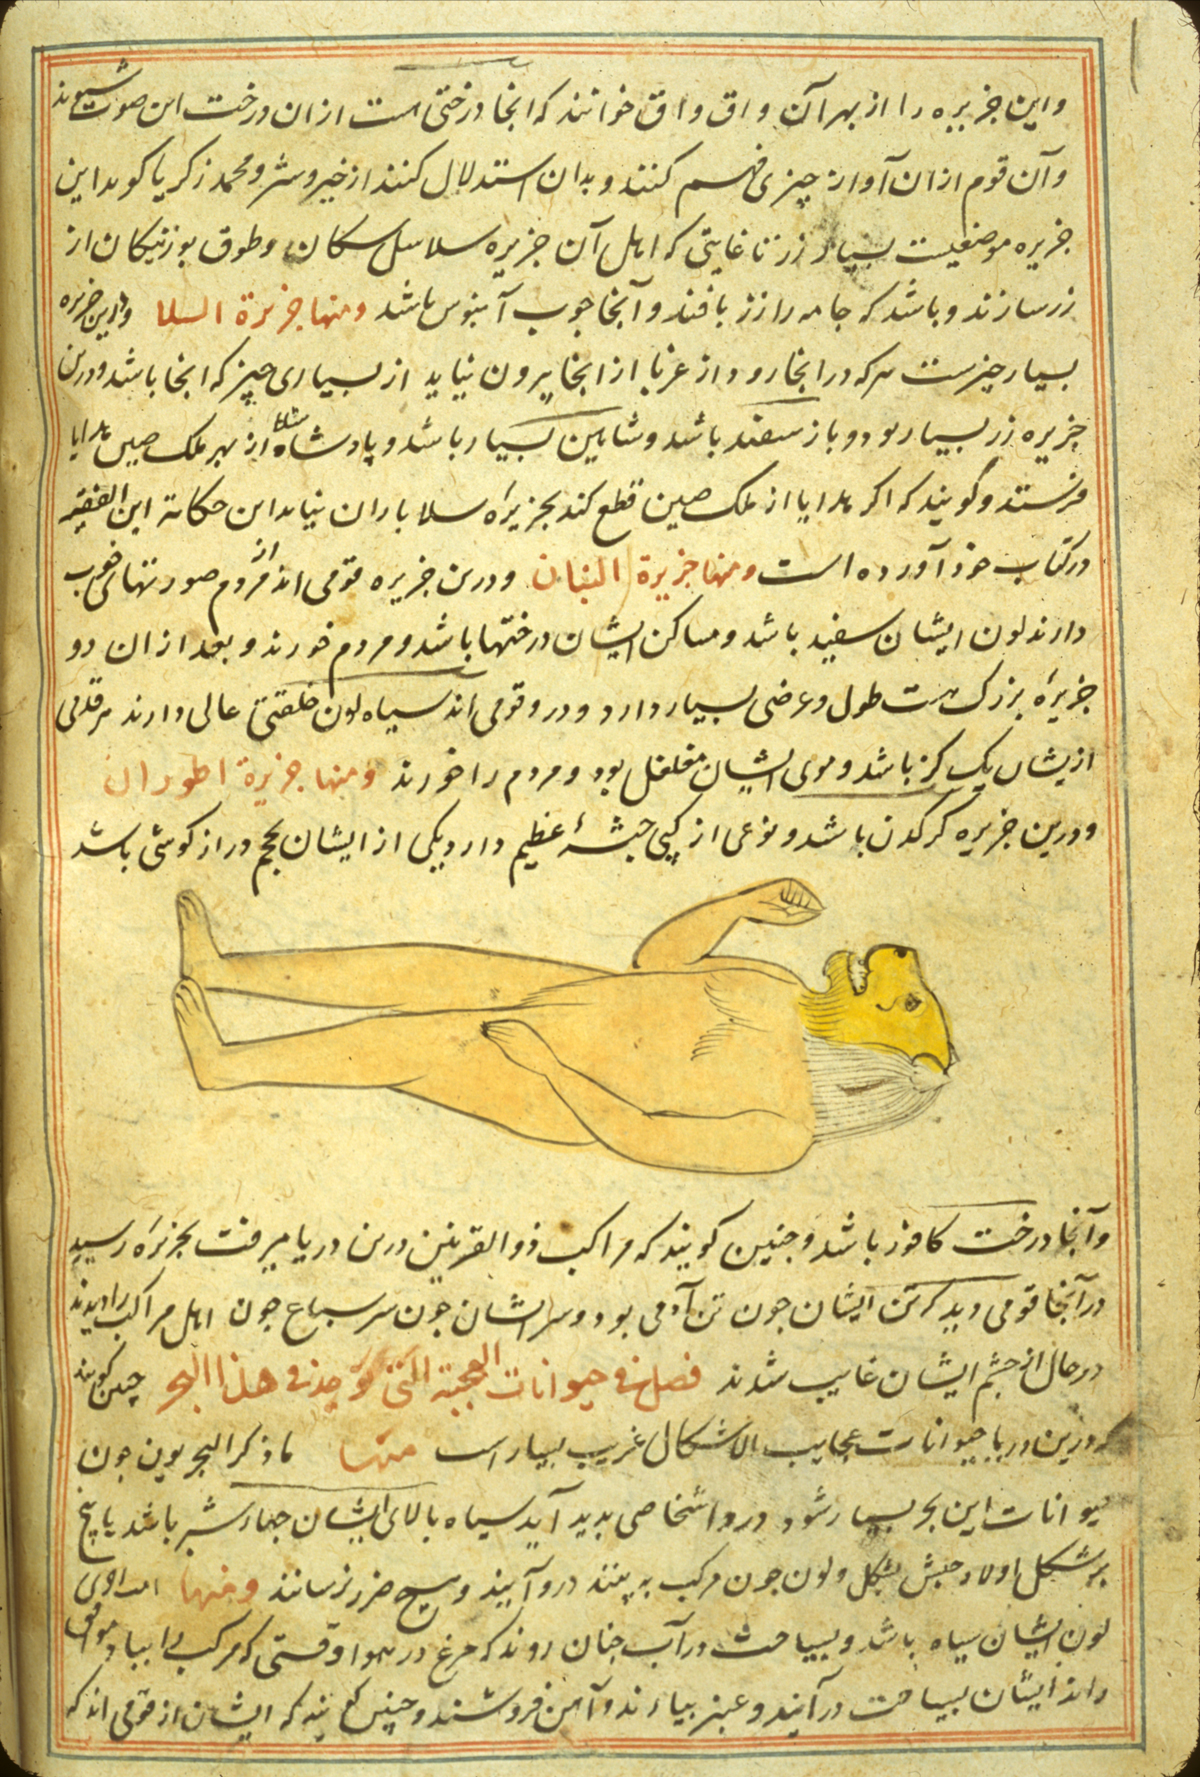 واین جزیره را از بهر آن واق واق خوانند که انجا درختی است ازان درخت این صوت شنوند
وآن قوم ازان آواز چیزی فهم کنند و بدان استدلال کنند از خیر وشر و محمد زکریا کوید این
جزیره موضعیست بسیار زر تا غایتی که اهل آن جزیره سلاسل سکان وطوق بوزنیکان از
زر سازند و باشد که جامه را از زر بافند و آنجا جوب آبنوس باشد ومنها جزیرة السلا واین جزیره
بسیار خیرست هرکه در انجا رود از غربا از انجا بیرون نیاید از بسیاری چیز که انجا باشد ودرین
جزیره زر بسیار بود و باز سفند باشد وشاهین بسیار باشد و پادشاه از بهر ملک صین هدایا
فرستد وگویند که اکر هدایا از ملک صین قطع کند بجزیرٔه سلا باران نیاید این حکایة ابن الفقیه
در کتاب خود آورده است ومنها جزیرة البنان ودرین جزیره قومی اند از مردم صورتهای خوب
دارند لون ایشان سفید باشد ومساکن ایشان درختها باشد ومردم خورند و بعد ازان دو
جزیرٔه بزرک هست طول وعرضی بسیار دارد و درو قومی اند سیاه لون خلقتی عالی دارند هر قدمی
ازیشان یک کز باشد وموی ایشان مفلفل بود ومردم را خورند ومنها جزیرة اطوران
و درین جزیره کرکدن باشد و نوعی از کپی جثهٔ عظیم دارد یکی از ایشان بحجم دراز کوشی باشد
وآنجا درخت کافور باشد وجنین کویند که مراکب ذوالقرنین درین دریا میرفت بجزیرٔه رسید
در آنجا قومی دید که تن ایشان جون تن آدمی بود وسر ایشان جون سر سباع جون اهل مراکب را دیدند
درحال از جشم ایشان غایب شدند فصل فی حیوانات العجیبة التی توجد فی هذا البحر جنین کویند
که درین دریا حیوانات عجایب الاشکال غریب بسیار است منها ما ذکر البحریون جون
حیوانات این بحر بسیار شود درو اشخاصی پدید آید سیاه بالای ایشان جهار شبر باشد یا پنج
برشکل اولاد حبش بشکل ولون جون مرکب به بینند درو آیند وهیچ ضرر نرسانند ومنها
لون ایشان سیاه باشد و بسیاحت در آب جنان روند که مرغ در هوا وقتی که مرکب
ایشان بسیاحت درآیند وعنبر بیارند وآهن فروشند وجنین کویند که ایشان از قومی اند که